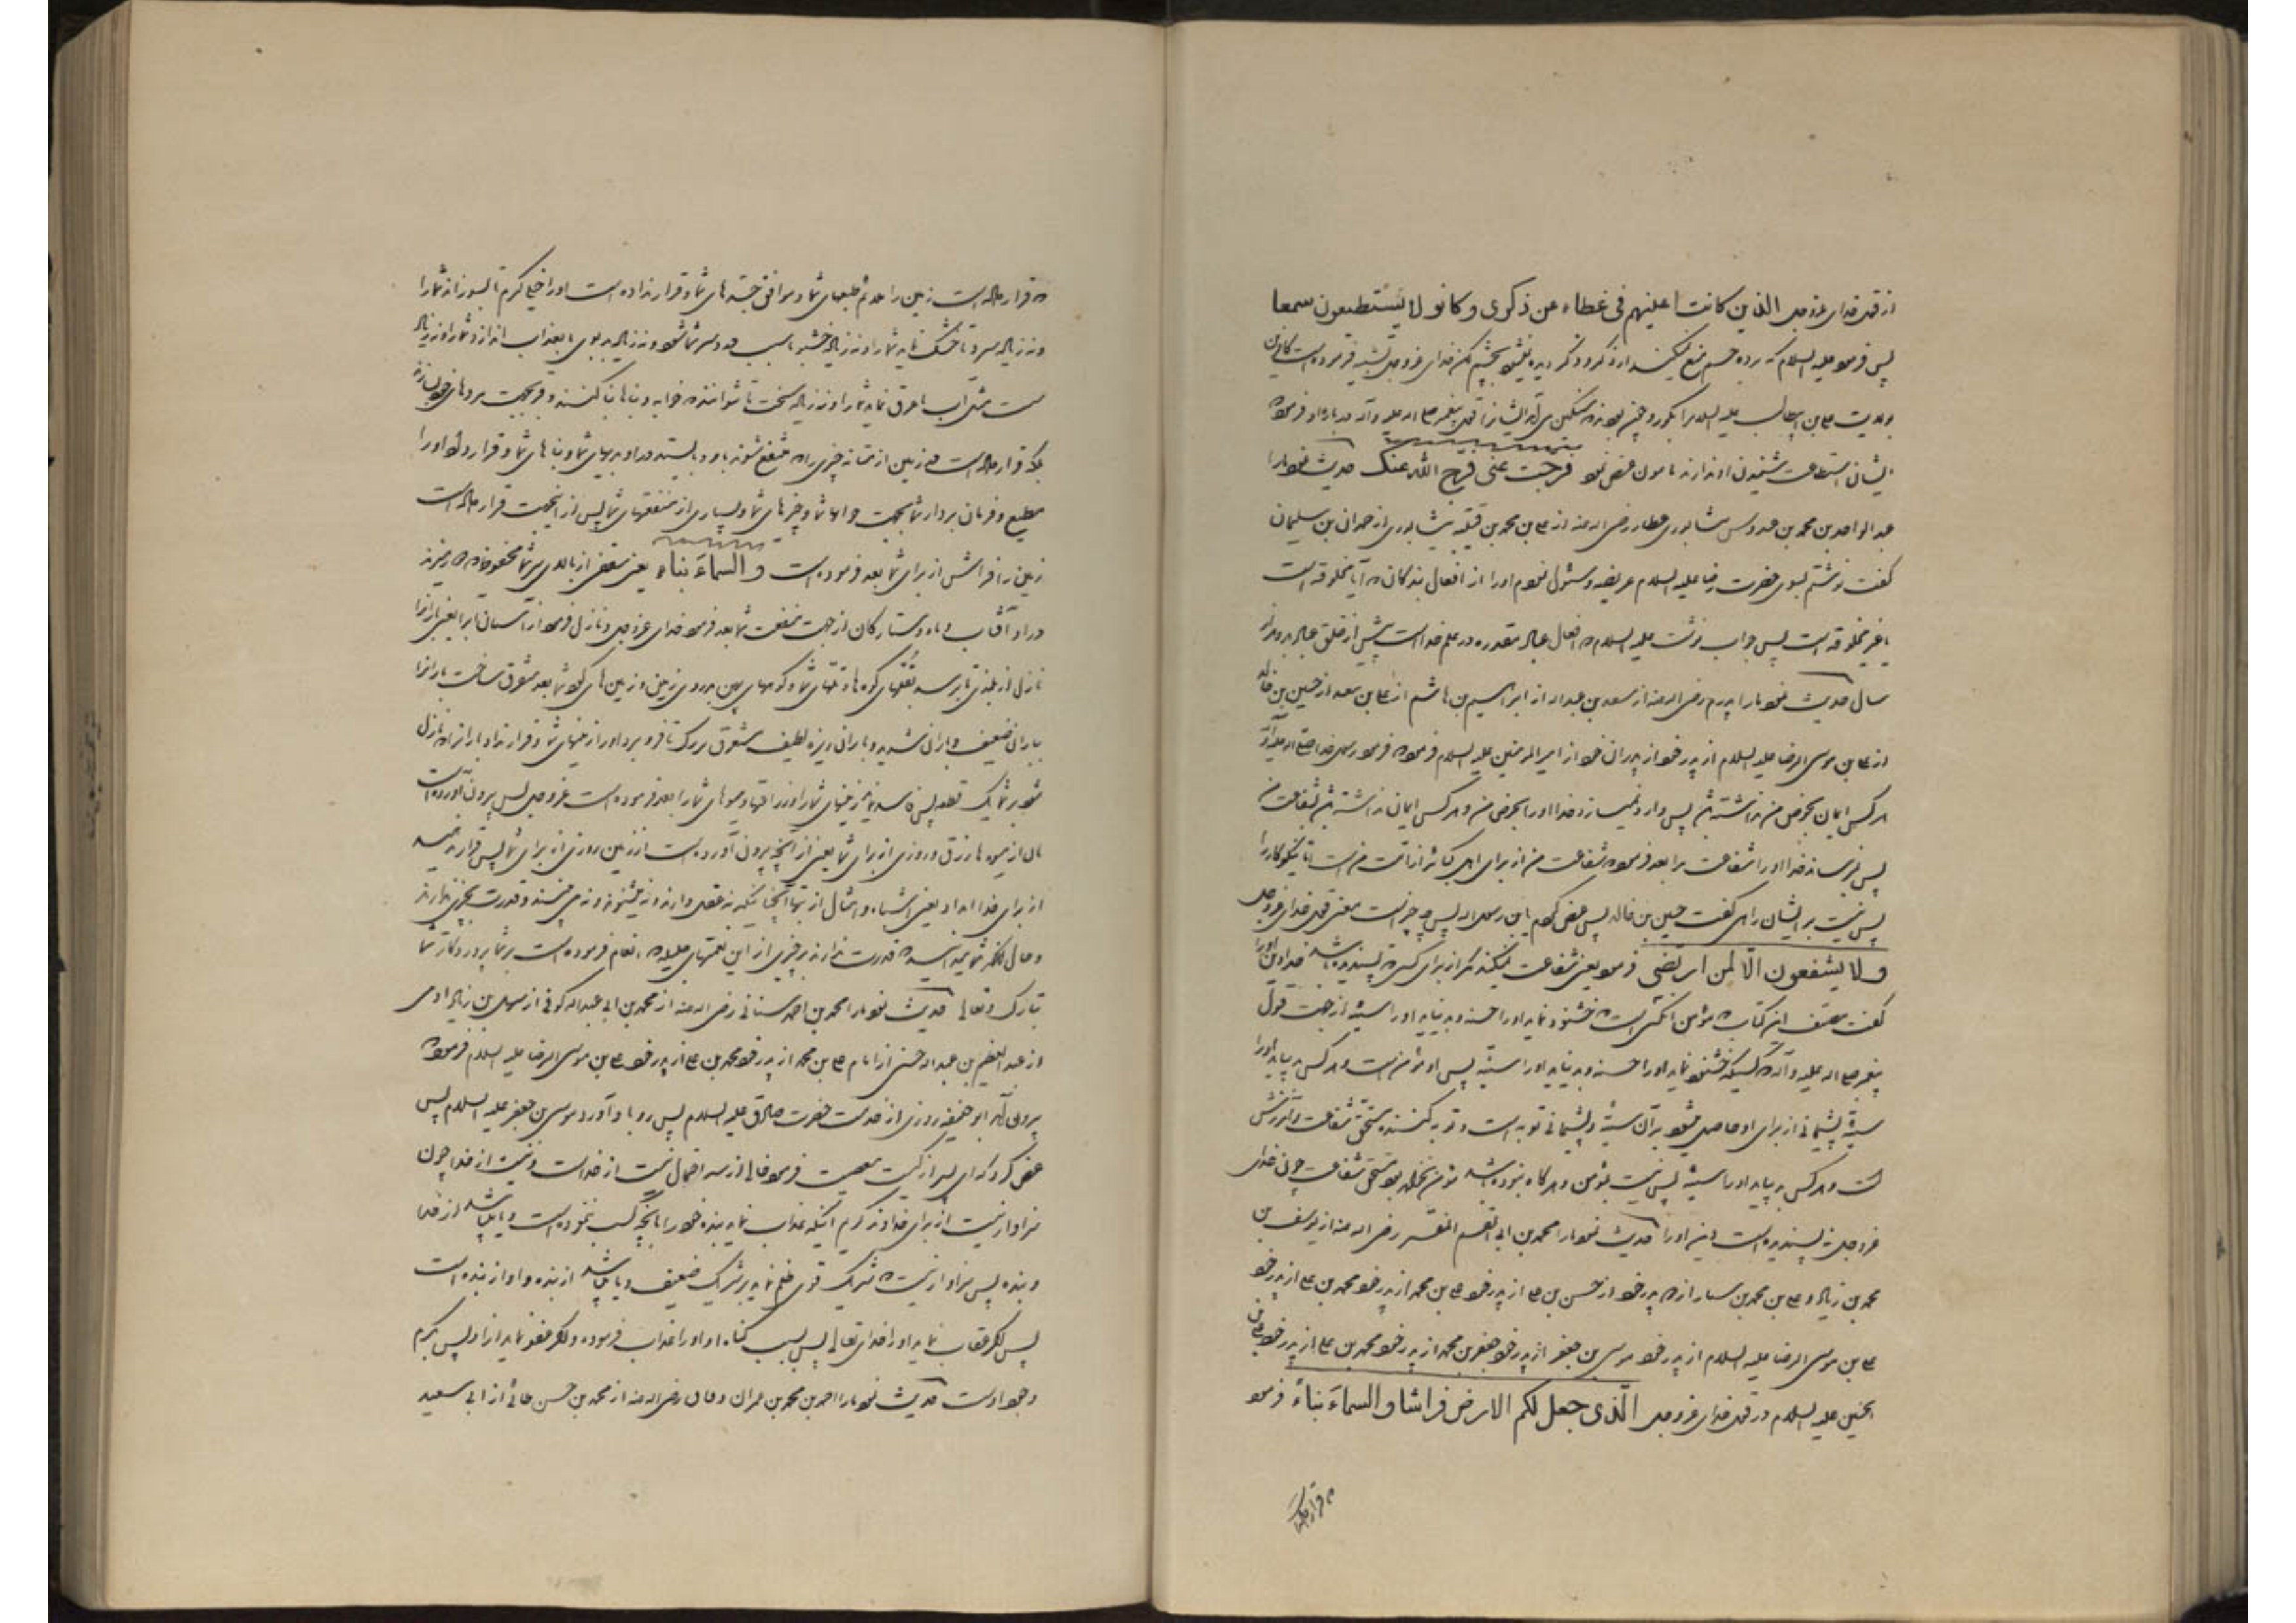 از قول خدای عزوجل الذین کانت اعلینهم فی غطاء عن ذکری و کانو لا یستطیعون سمعا
پس فرمود علیه السلام که پرده چشم منع نمیکند از ذکر و ذکر دیده نمیشود بچشم لکن خدای عزوجل تشبیه فرموده است کافرین
بولایت علی بن ابیطالب علیه السلام را بکور و چنین بودند سنگین می آمد ایشانرا قول پیغمبر صلی اله علیه و آله درباره او فرموده
ایشان استطاعت شنیدن او ندارند مامون عرض نمود فرجت عنی فرج الله عنک حدیث نمود مارا
عبد الواحد بن محمد بن عبدوس نیشابوری عطار رضی اله عنه از علی بن محمد بن قتیبه نیشابوری از حمدان بن سلیمان
گفت نوشتم بسوی حضرت رضا علیه السلام عریضه و سئوال نمودم او را از افعال بندگان که آیا مخلوقه است
یا غیر مخلوقه است پس جواب نوشت علیه السلام که افعال عباد مقدره در علم خدا است پیش از خلق عباد بدو هزار
سال حدیث نمود مارا پدرم رضی اله عنه از سعد بن عبداله از ابراهیم بن هاشم از علی بن معبد از حسین بن خالد
از علی بن موسی الرضا علیه السلام از پدر خود از پدران خود از امیر المومنین علیه السلام فرموده فرمود رسول خدا صلی اله علیه و آله
هر کس ایمان بحوض من نداشته باشد پس وارد نمیسازد خدا او را بحوض من و هر کس ایمان نداشته باشد بشفاعت من
پس نمیرساند خدا او را شفاعت مرا بعد فرمود شفاعت من از برای اهل کبائر از امت من است اما نیکوکارا
پس نیست بر ایشان راهی گفت حسین بن خالد پس عرض کردم یابن رسول اله پس چه چیز است معنی قول خدای عزوجل
و لا یشفعون الا لمن ارتضی فرمود یعنی شفاعت نمیکند مگر از برای کسی که پسندیده باشد خدا دین او را
گفت مصنف این کتاب مؤمن آنکسی است که خشنود نماید او را حسنه و بدنیاید او را سیئه از جهت قول
پیغمبر صلی اله علیه و آله که کسیکه خشنود نماید او را حسنه و بدنیاید او را سیئه پس او مؤمن است و هر کس بدنیاید او را
سیئه پشیمانی از برای او حاصل میشود بر آن سیئه و پشیمانی توبه است و توبه کننده مستحق شفاعت و آمرزش
است و هر کس بدنیاید او را سیئه پس نیست مؤمن و هرگاه نبوده باشد مؤمن نخواهد بود مستحق شفاعت چون خدای
عزوجل نپسندیده است دین او را حدیث نمود مارا محمد بن ابی القسم المفسر رضی اله عنه از یوسف بن
محمد بن زیاد و علی بن محمد بن سیار از پدر خود از حسن بن علی از پدر خود علی بن محمد از پدر خود محمد بن علی از پدر خود
علی بن موسی الرضا علیه السلام از پدر خود موسی بن جعفر از پدر خود جعفر بن محمد از پدر خود محمد بن علی از پدر خود علی بن
الحسین علیه السلام در قول خدای عزوجل الذی جعل لکم الارض فراشا و السماء بناء فرمود
که قرار داده است
که قرار داده است زمین را ملائم طبعهای شما و موافق جثه های شما و قرار نداده است او را خیلی گرم تا بسوزاند شما را
و نه زیاد سرد تا خشک نماید شما را و نه زیاد خوشبو تا سبب درد سر شما شود و نه زیاد بد بوی تا بعذاب اندازد شما را و نه زیاد
سست مثل آب تا غرق نماید شما را و نه زیاد سخت تا نتوانند و بناها بنا کنند و قبر بجهت مردهای خود بسازند
بلکه قرار داده است در زمین از متانه چیزی را که منتفع شوند باو و بایستد در او بدنهای شما و بناهای شما و قرار داد او را
مطیع و فرمان بردار شما بجهت خانها شما و قبرهای شما و بسیاری از منفعتهای شما پس از اینجهت قرار داده است
زمین را فراش از برای شما بعد فرموده است و السماء بناء یعنی سقفی از بالای سر شما محفوظ که میگردند
در او آفتاب و ماه و ستارگان از جهت منفعت شما بعد فرمود خدای عزوجل و نازل فرمود از آسمان آبرا یعنی بارانرا
نازل از بلندی تا برسد بقلهای کوه ها و تلهای شما و کودیهای پهن در روی زمین و زمین های گود شما بعد متفرق ساخت بارانرا
بباران ضعیف و باران شدید و باران ریزه لطیف متفرق بزرگ تا فرو برد او را زمینهای شما و قرار نداد بارانرا که نازل
شود بر شما یک قطعه پس فاسد نماید زمینهای شما را و زراعتها و میوهای شما را بعد فرموده است عزوجل پس بیرون آورده است
بان از میوه ها رزق و روزی از برای شما یعنی از آنچه بیرون آورده است از زمین روزی از برای شما پس قرار ندهید
از برای خدا انداد یعنی اشباه و امثال از بتها آنچنانیکه نه عقل دارند و نه میشنوند و نه می بینند و قدرت بچیزی ندارند
و حال آنکه شما میدانید که قدرت ندارند بر چیزی از این نعمتهای جلیله که انعام فرموده است بر شما پروردگار شما
تبارک و تعالی حدیث نمود مارا محمد بن احمد سنانی رضی اله عنه از محمد بن ابی عبداله کوفی از سهل بن زیاد ادمی
از عبد العظیم بن عبداله حسنی از امام علی بن محمد از پدر خود محمد بن علی از پدر خود علی بن موسی الرضا علیه السلام فرموده
بیرون آمد ابو حنیفه روزی از خدمت حضرت صادق علیه السلام پس رو باو آورد موسی بن جعفر علیه السلام پس
عرض کرد که ای پسر از کیست معصیت فرمود خالی از سه احتمال نیست یا از خداست و نیست از خدا چون
سزاوار نیست از برای خداوند کریم اینکه عذاب نماید بنده خود را بآنچه کسب ننموده است و یا میباشد از خدا
و بنده پس سزاوار نیست که شریک قوی ظلم نماید بر شریک ضعیف و یا میباشد از بنده و او از بنده است
پس اگر عقاب نماید او را خدای تعالی پس بسبب گناه او او را عذاب فرموده و اگر عفو نماید از او پس بکرم
و جود اوست حدیث نمود مارا احمد بن محمد بن عمران دقاق رضی اله عنه از محمد بن حسن طائی از ابی سعید